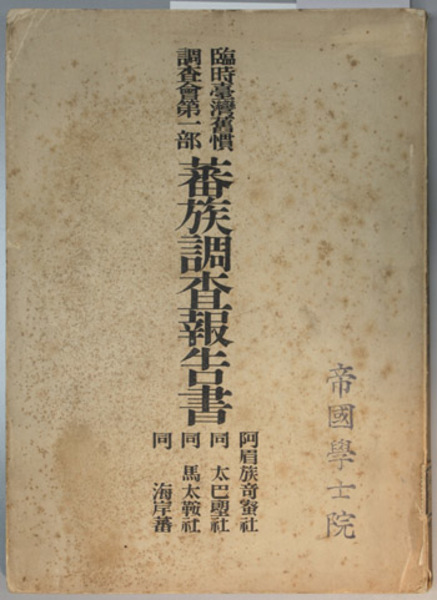 臨時臺灣舊慣
調査會第一部
蕃族調査報告書
阿眉族奇蜜社
同 太巴塱社
同 馬太鞍社
同 海岸蕃
帝國學士院